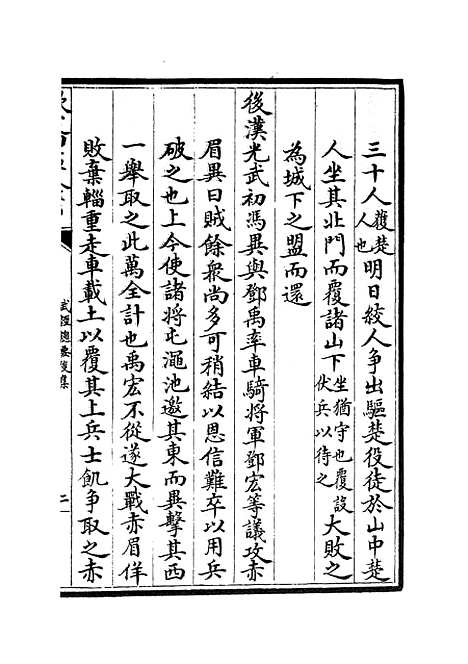 三十人獲楚人也明日絞人争出驅楚役徒於山中楚
人坐其北門而覆諸山下坐猶守也覆設伏兵以待之大敗之
為城下之盟而還
後漢光武初馮異與鄧禹率車騎將軍鄧宏等議攻赤
眉異曰賊餘衆尚多可稍結以恩信難卒以用兵
破之也上今使諸將屯澠池邀其東而異擊其西
一舉取之此萬全計也禹宏不從遂大戰赤眉佯
敗棄輜重走車載土以覆其上兵士飢争取之赤
武經總要後集
二